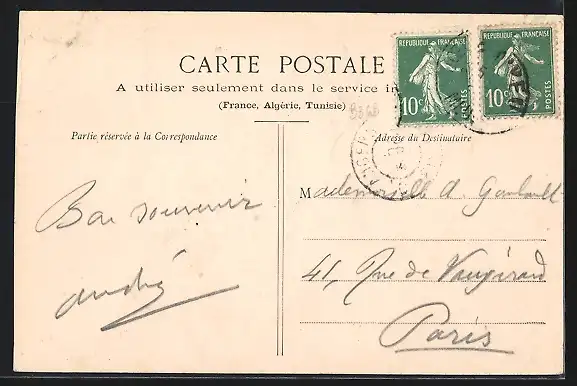 CARTE POSTALE
A utiliser seulement dans le service in
(France, Algérie, Tunisie)
REPUBLIQUE FRANÇAISE
10c
POSTES
REPUBLIQUE FRANÇAISE
10c
POSTES
Partie réservée à la Correspondance
Adresse du Destinataire
Bon souvenir
André
Mademoiselle A.
41, Rue de Vaugirard
Paris